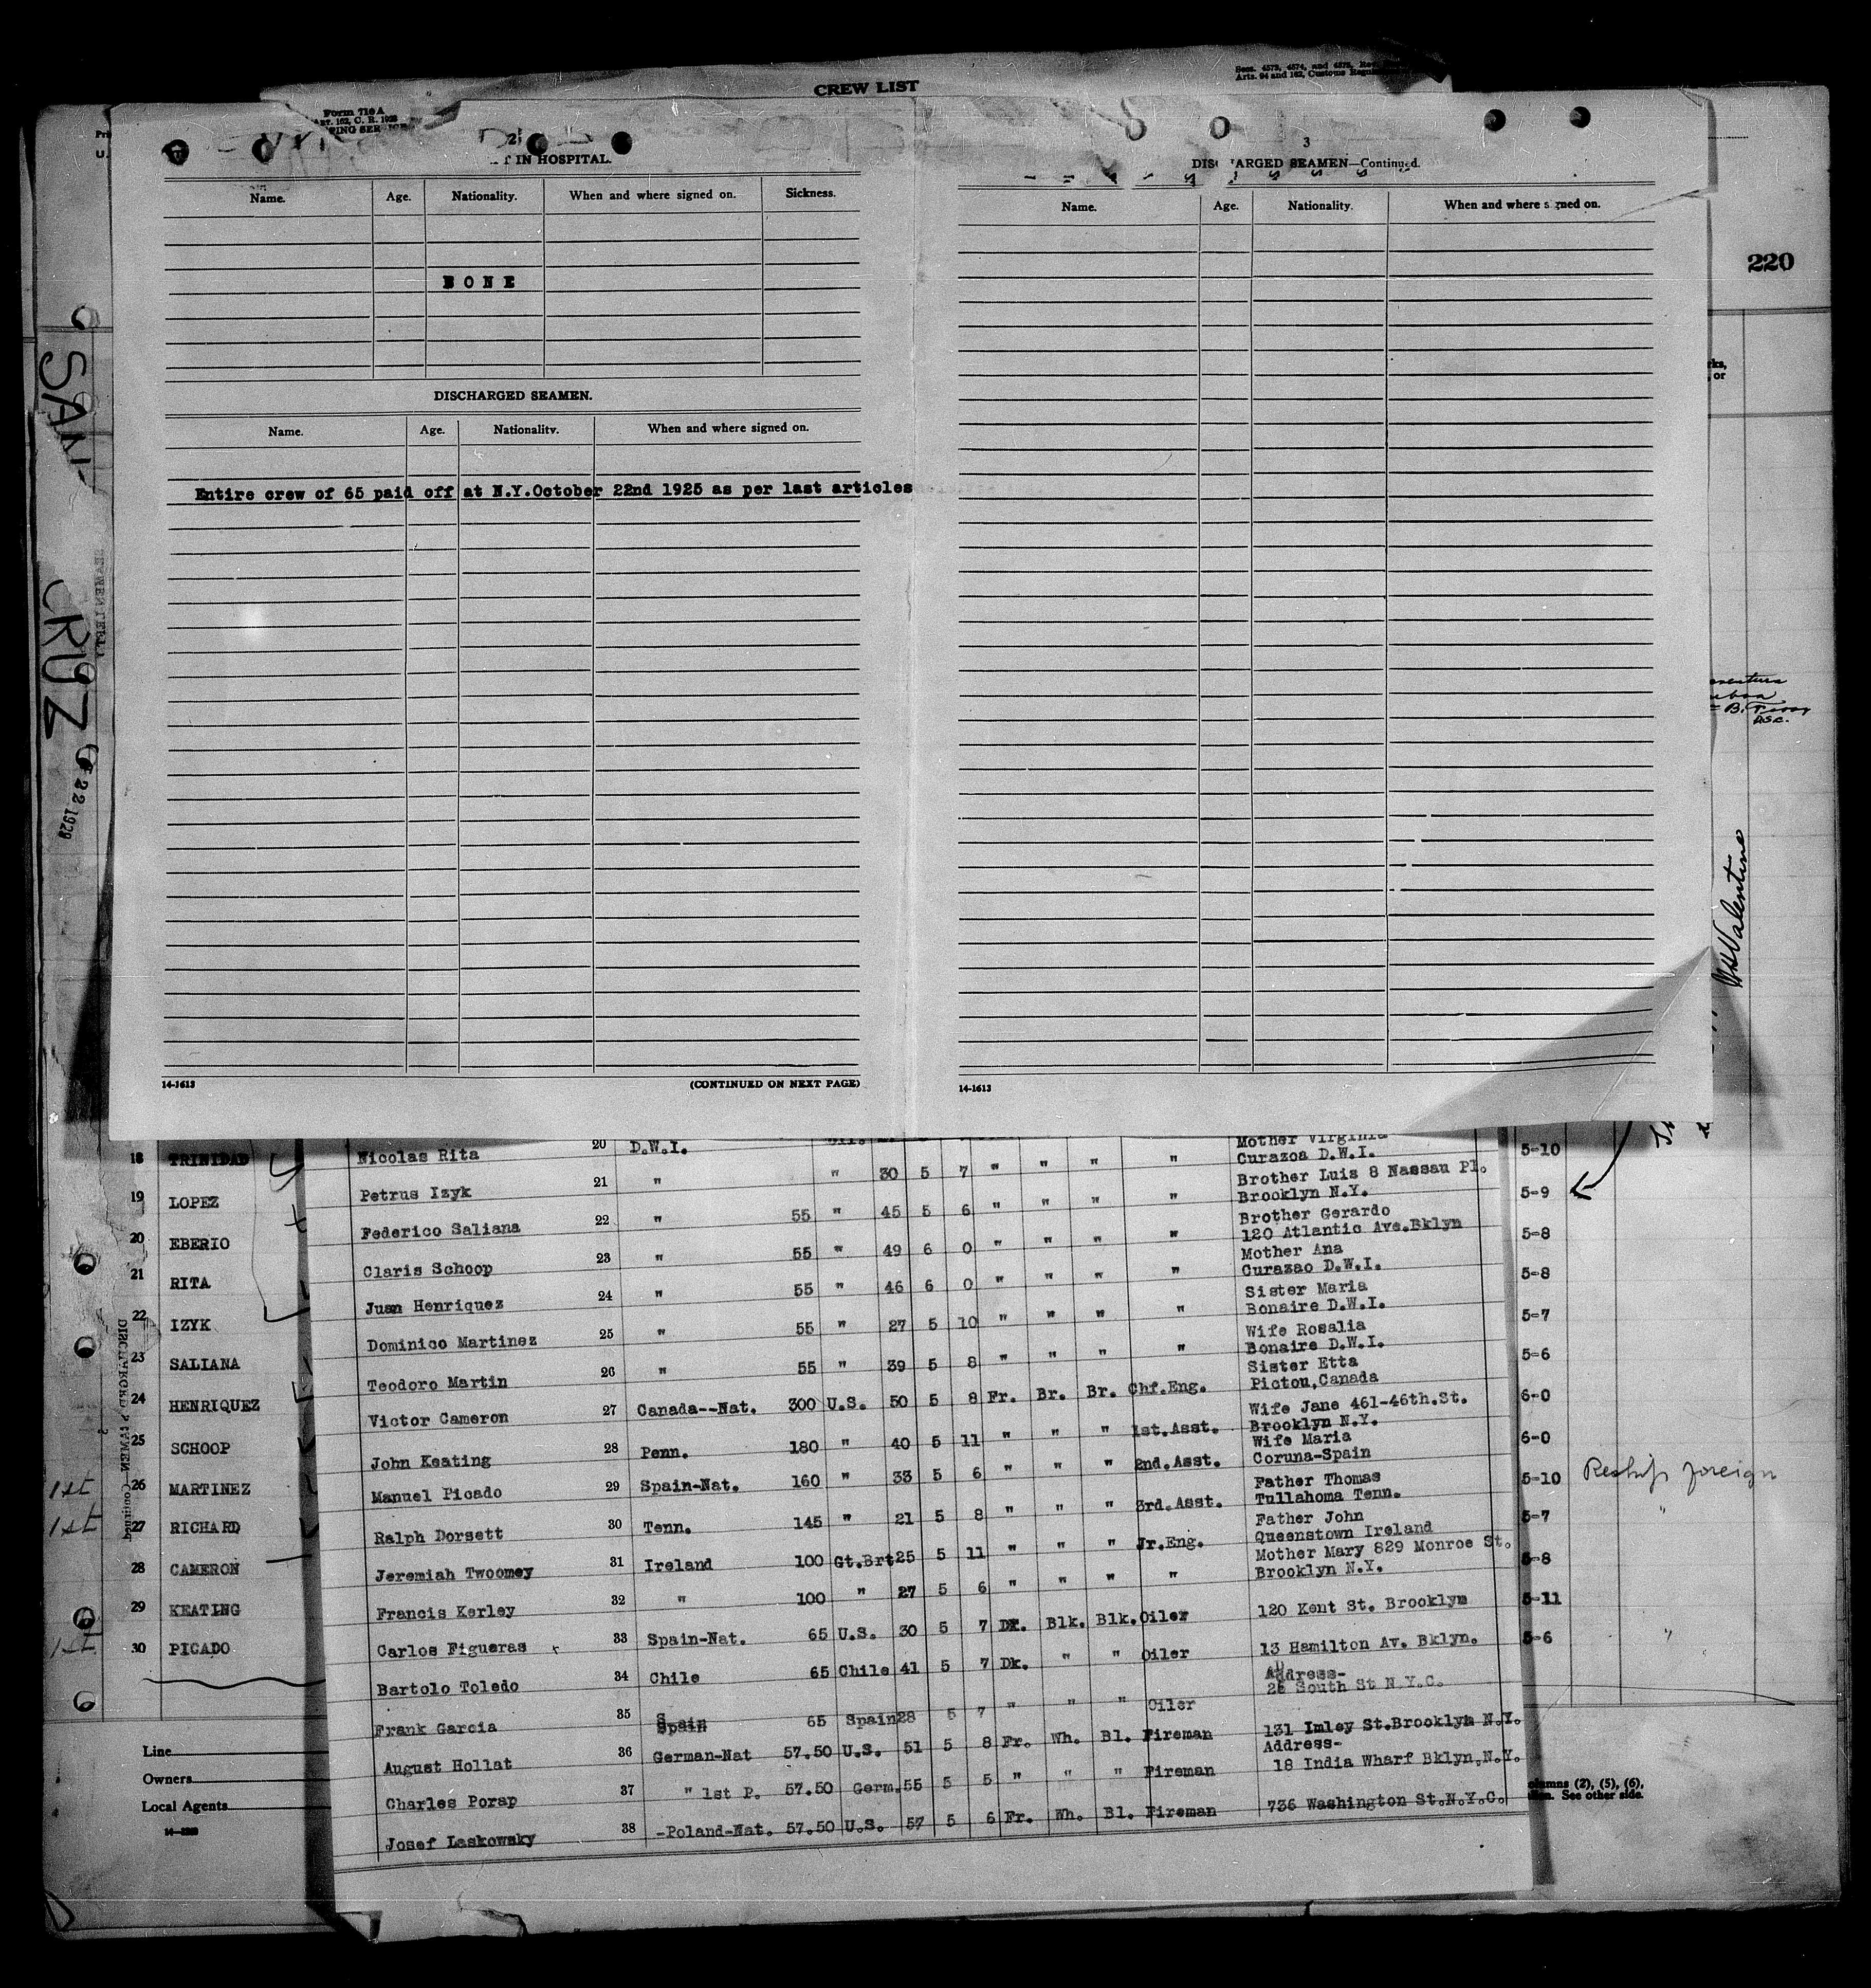 CREW LIST
Secs. 4573, 4574, and 4575, Rev.
Arts. 94 and 162, Customs Regu
Form 710 A
ART. 162, C. R. 1923
PING SER
2
T IN HOSPITAL.
Name. Age. Nationality. When and where signed on. Sickness.
BONE
DISCHARGED SEAMEN.
Name. Age. Nationality. When and where signed on.
Entire crew of 65 paid off at N.Y.October 22nd 1925 as per last articles
14-1613 (CONTINUED ON NEXT PAGE)
3
DISCHARGED SEAMEN—Continued.
Name. Age. Nationality. When and where signed on.
14-1613
220
rks,
, or
SAN
CRUZ
22 1929
B.
D.S.C.
Valentine
18 TRINIDAD
19 LOPEZ
20 EBERIO
21 RITA
22 IZYK
23 SALIANA
24 HENRIQUEZ
25 SCHOOP
1st 26 MARTINEZ
1st 27 RICHARD
28 CAMERON
29 KEATING
1st 30 PICADO
DISCHARGED SEAMEN Continued
Line
Owners
Local Agents
Nicolas Rita 20 D.W.I. Mother Virginia
Curazoa D.W.I.
Petrus Izyk 21 " " 30 5 7 " " " " Brother Luis 8 Nassau Pl.
Brooklyn N.Y.
Federico Saliana 22 " 55 " 45 5 6 " " " " Brother Gerardo
120 Atlantic Ave.Bklyn
Claris Schoop 23 " 55 " 49 6 0 " " " " Mother Ana
Curazao D.W.I.
Juan Henriquez 24 " 55 " 46 6 0 " " " " Sister Maria
Bonaire D.W.I.
Dominico Martinez 25 " 55 " 27 5 10 " " " " Wife Rosalia
Bonaire D.W.I.
Teodoro Martin 26 " 55 " 39 5 8 " " " " Sister Etta
Pictou,Canada
Victor Cameron 27 Canada--Nat. 300 U.S. 50 5 8 Fr. Br. Br. Chf.Eng. Wife Jane 461-46th.St.
Brooklyn N.Y.
John Keating 28 Penn. 180 " 40 5 11 " " " 1st.Asst. Wife Maria
Coruna-Spain
Manuel Picado 29 Spain-Nat. 160 " 33 5 6 " " " 2nd.Asst. Father Thomas
Tullahoma Tenn.
Ralph Dorsett 30 Tenn. 145 " 21 5 8 " " " 3rd.Asst. Father John
Queenstown Ireland
Jeremiah Twoomey 31 Ireland 100 Gt.Brt 25 5 11 " " " Jr.Eng. Mother Mary 829 Monroe St.
Brooklyn N.Y.
Francis Kerley 32 " 100 " 27 5 6 " " " "
Carlos Figueras 33 Spain-Nat. 65 U.S. 30 5 7 Dk. Blk. Blk. Oiler 120 Kent St. Brooklyn
Bartolo Toledo 34 Chile 65 Chile 41 5 7 Dk. " " Oiler 13 Hamilton Av. Bklyn.
Address-
Frank Garcia 35 Spain 65 Spain 28 5 7 " " " Oiler 26 South St N.Y.C.
August Hollat 36 German-Nat 57.50 U.S. 51 5 8 Fr. Wh. Bl. Fireman 131 Imley St.Brooklyn N.Y.
Address-
Charles Porap 37 " 1st P. 57.50 Germ. 55 5 5 " " " Fireman 18 India Wharf Bklyn.N.Y.
Josef Laskowsky 38 -Poland-Nat. 57.50 U.S. 57 5 6 Fr. Wh. Bl. Fireman 736 Washington St.N.Y.C.
5-10
5-9
5-8
5-8
5-7
5-6
6-0
6-0
5-10 Reship foreign
5-7 "
5-8
5-11
5-6 "
olumns (2), (5), (6),
See other side.